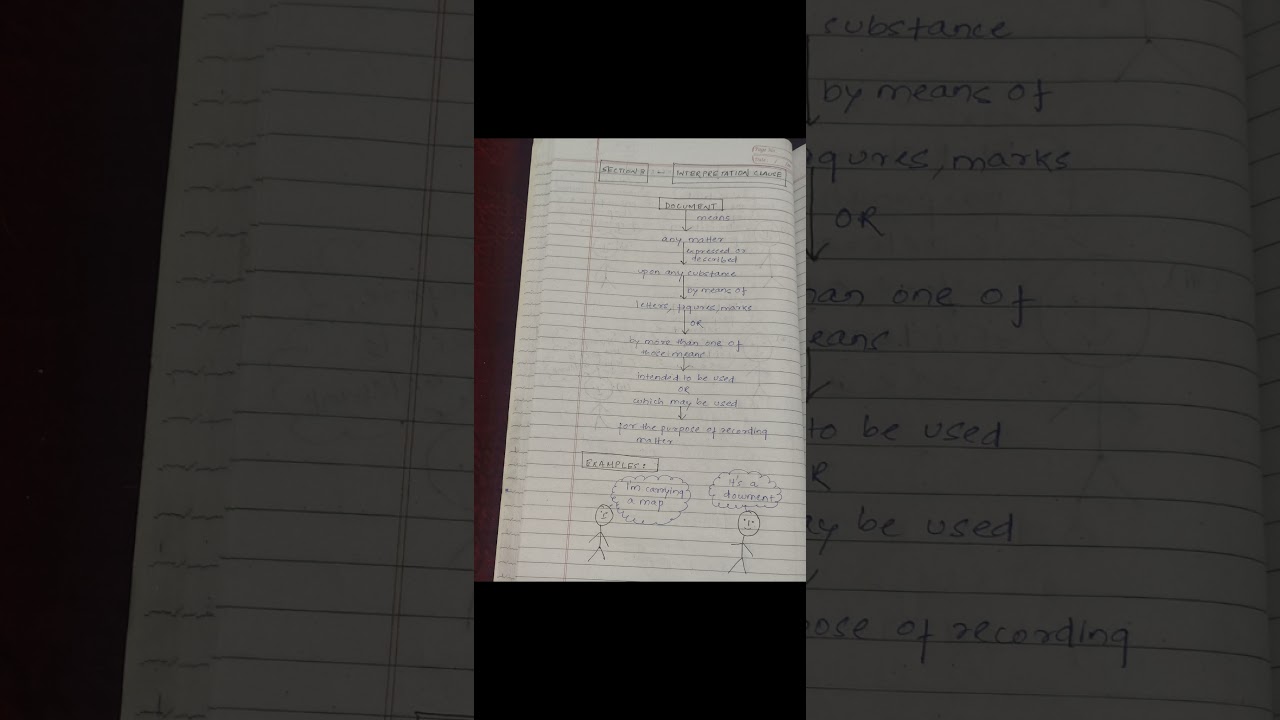 SECTION 3 :- INTERPRETATION CLAUSE
DOCUMENT
means
any matter
expressed or
described
upon any substance
by means of
letters, figures, marks
OR
by more than one of
those means
intended to be used
OR
which may be used
for the purpose of recording
matter
EXAMPLES:
I'm carrying
a map
It's a
document
substance
by means of
gures, marks
OR
an one of
eans
to be used
R
y be used
ose of recording